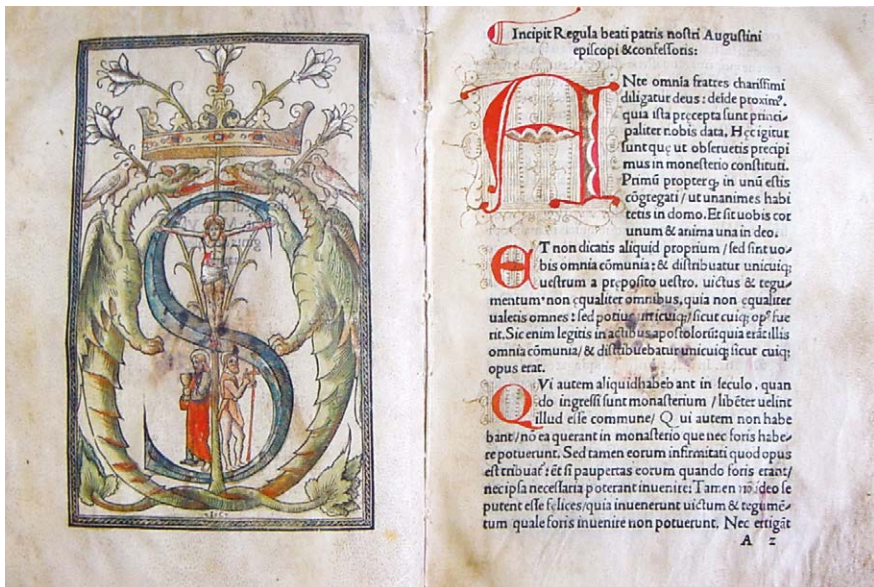 Incipit Regula beati patris nostri Augustini
episcopi & confessoris:
ANte omnia fratres charissimi
diligatur deus: deīde proximꝰ.
quia ista pręcepta sunt princi-
paliter nobis data. Hęc igitur
sunt quę ut obseruetis precipi
mus in monesterio constituti.
Primū propter qȝ in unū estis
cōgregati / ut unanimes habi
tetis in domo. Et sit uobis cor
unum & anima una in deo.
ET non dicatis aliquid proprium / sed sint uo-
bis omnia cōmunia: & distribuatur unicuiqȝ
uestrum a pręposito uestro. uictus & tegu-
mentum. non ęqualiter omnibus, quia non ęqualiter
ualetis omnes: sed potius unicuiqȝ / sicut cuiqȝ opꝰ fue
rit. Sic enim legitis in actibus apostolorū: quia erāt illis
omnia cōmunia / & distribuebatur unicuiqȝ sicut cuiqȝ
opus erat.
QVi autem aliquid habebant in seculo, quan
do ingressi sunt monasterium / libēter uelint
illud esse commune / Qui autem non habe
bant / nō ea querant in monasterio que nec foris habe-
re potuerunt. Sed tamen eorum infirmitati quod opus
est tribuat: et si paupertas eorum quando foris erant /
nec ipsa necessaria poterant inuenire: Tamen nō ideo se
putent esse felices / quia inuenerunt uictum & tegumē-
tum quale foris inuenire non potuerunt. Nec erigāt
A 2